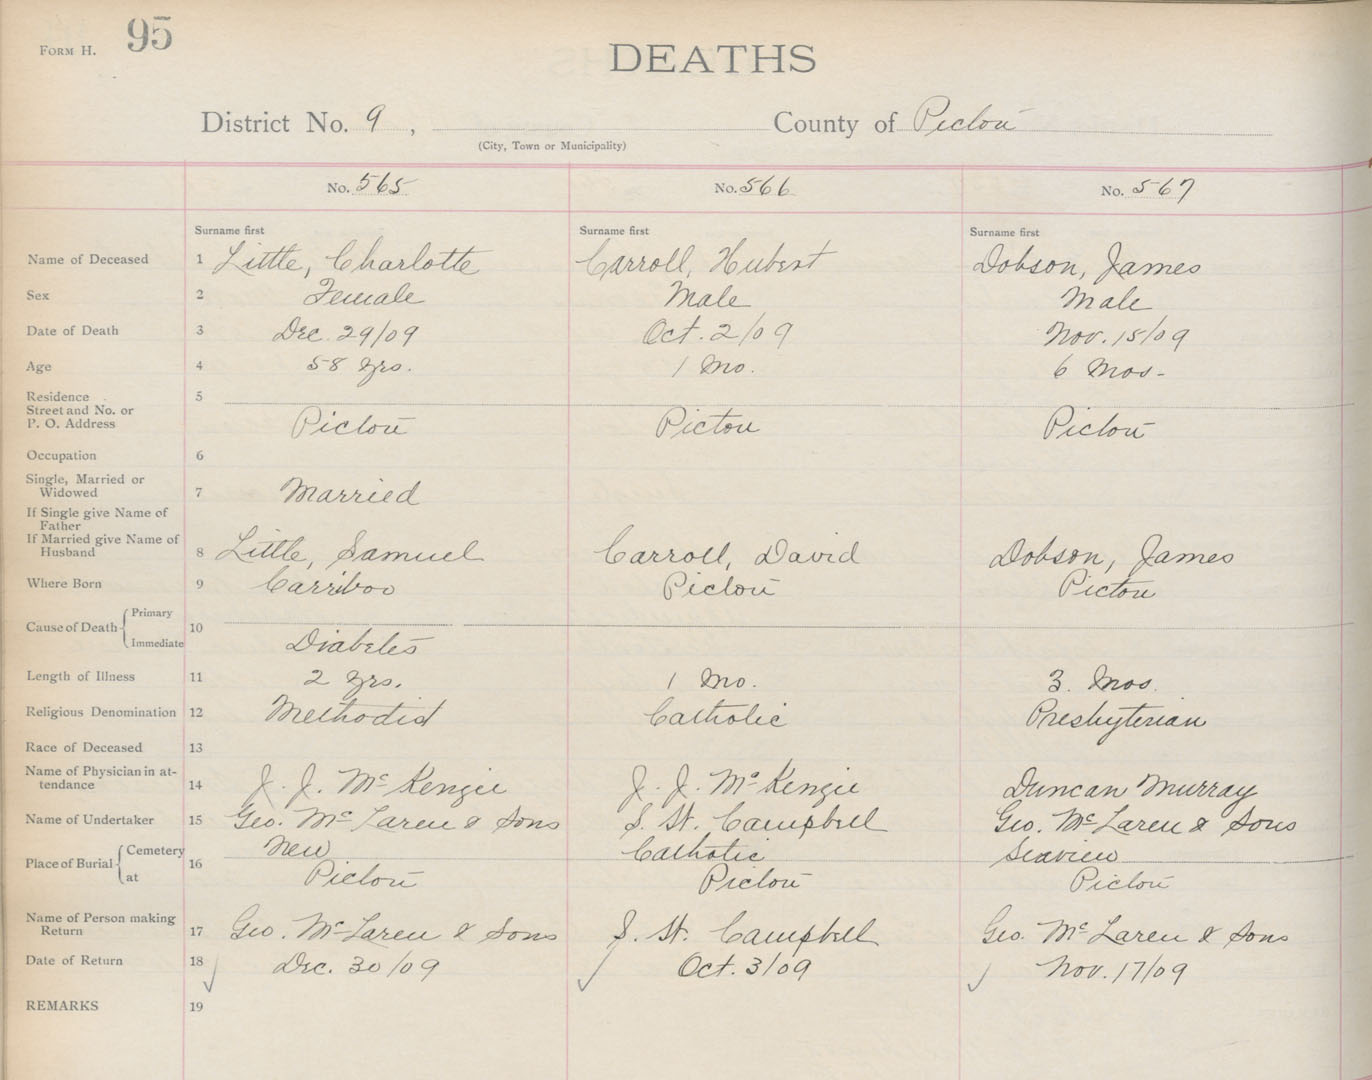 FORM H. 95
DEATHS
District No. 9, County of Pictou
(City, Town or Municipality)
No. 565 No. 566 No. 567
Surname first Surname first Surname first
Name of Deceased 1 Little, Charlotte Carroll, Hubert Dobson, James
Sex 2 Female Male Male
Date of Death 3 Dec. 29/09 Oct. 2/09 Nov. 15/09
Age 4 58 yrs. 1 Mo. 6 Mos.
Residence 5
Street and No. or
P. O. Address Pictou Pictou Pictou
Occupation 6
Single, Married or
Widowed 7 Married
If Single give Name of
Father
If Married give Name of
Husband 8 Little, Samuel Carroll, David Dobson, James
Where Born 9 Carriboo Pictou Pictou
Cause of Death Primary 10
Immediate Diabetes
Length of Illness 11 2 yrs. 1 Mo. 3. Mos.
Religious Denomination 12 Methodist Catholic Presbyterian
Race of Deceased 13
Name of Physician in at-
tendance 14 J. J. McKenzie J. J. McKenzie Duncan Murray
Name of Undertaker 15 Geo. McLaren & Sons Campbell Geo. McLaren & Sons
Place of Burial Cemetery 16 New Catholic Seaview
at Pictou Pictou Pictou
Name of Person making
Return 17 Geo. McLaren & Sons Campbell Geo. McLaren & Sons
Date of Return 18 Dec. 30/09 Oct. 3/09 Nov. 17/09
REMARKS 19